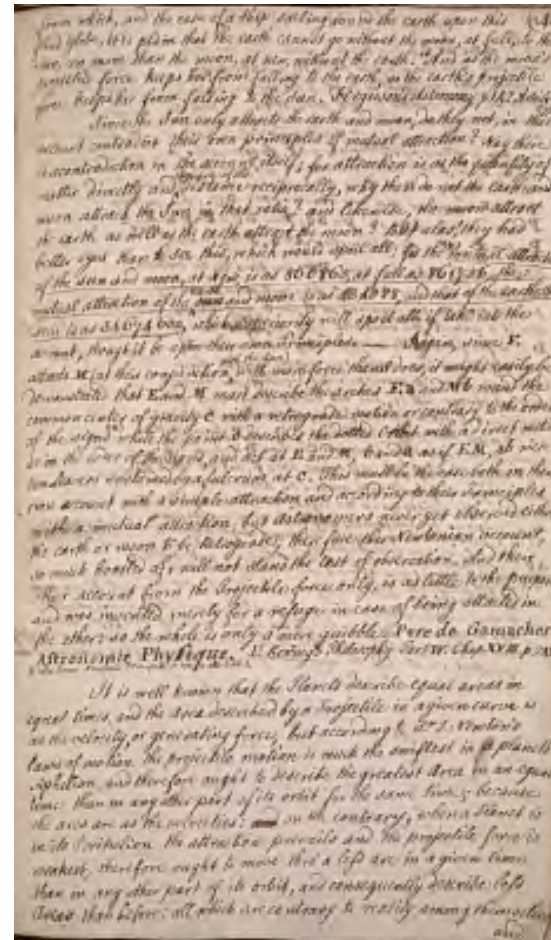 from which, and the case of a ship sailing round the earth upon this
it is plain that the earth cannot go without the moon, at full, to the
no more than the moon, at new, without the earth. And as the moon's
projectile force keeps her from falling to the earth, so the earth's projectile
force keeps her from falling to the sun. Ferguson's Astronomy
Since the Sun only attracts the earth and moon, do they not, in that
account contradict their own principles of mutual attraction? Nay there
is a contradiction in the account itself; for attraction is as the quantity of
matter directly and distance reciprocally, why then do not the earth and
moon attract the Sun in that ratio? and likewise, the moon attract
the earth as well as the earth attract the moon? But alas! they had
better eyes than to see this, which would spoil all: for the mutual attraction
of the sun and moon, at is as at full as the
mutual attraction of the and moon is as and that of the earth &
sun is as which will spoil all if taken into the
account, though it be upon their own principles. Again, since E
attracts M, at this conjunction, with more force than it does, it might easily be
demonstrated that E and M must describe the arches E a and M b round the
common center of gravity C with a retrograde motion or contrary to the order
of the signs while the point C describes the dotted Orbit with a direct motion
or in the order of the signs, and act at E and M, as if E M, ab were
sustained by a fulcrum at C. This must be the case both on their
own account with a simple attraction and according to their principles
with a mutual attraction, but astronomers never yet observed either
the earth or moon to be Retrograde, therefore this Newtonian account,
so much boasted of will not stand the test of observation. And their
other account from the Projectile force only, is as little to the purpose
and was invented merely for a refuge in case of being attacked in
the other: so the whole is only a mere quibble. Pere de Gamaches
Astronomie Physique. Philosophy Part IV. Chap. XVIII. p.
It is well known that the Planets describe equal areas in
equal times, and the area described by a Projectile in a given curve is
as the velocity, or generating force; but according to Newton's
laws of motion the projectile motion is much the smallest in a planet's
aphelion, and therefore ought to describe the greatest Area in an equal
time than in any other part of its orbit for the same time; because
the arcs are as the velocities: on the contrary, when a Planet is
in its Perihelion the attraction prevails and the projectile force is
weakest, therefore ought to move thro' a less arc in a given time
than in any other part of its orbit, and consequently describe less
Areas than before: all which are contrary to reality among themselves
and